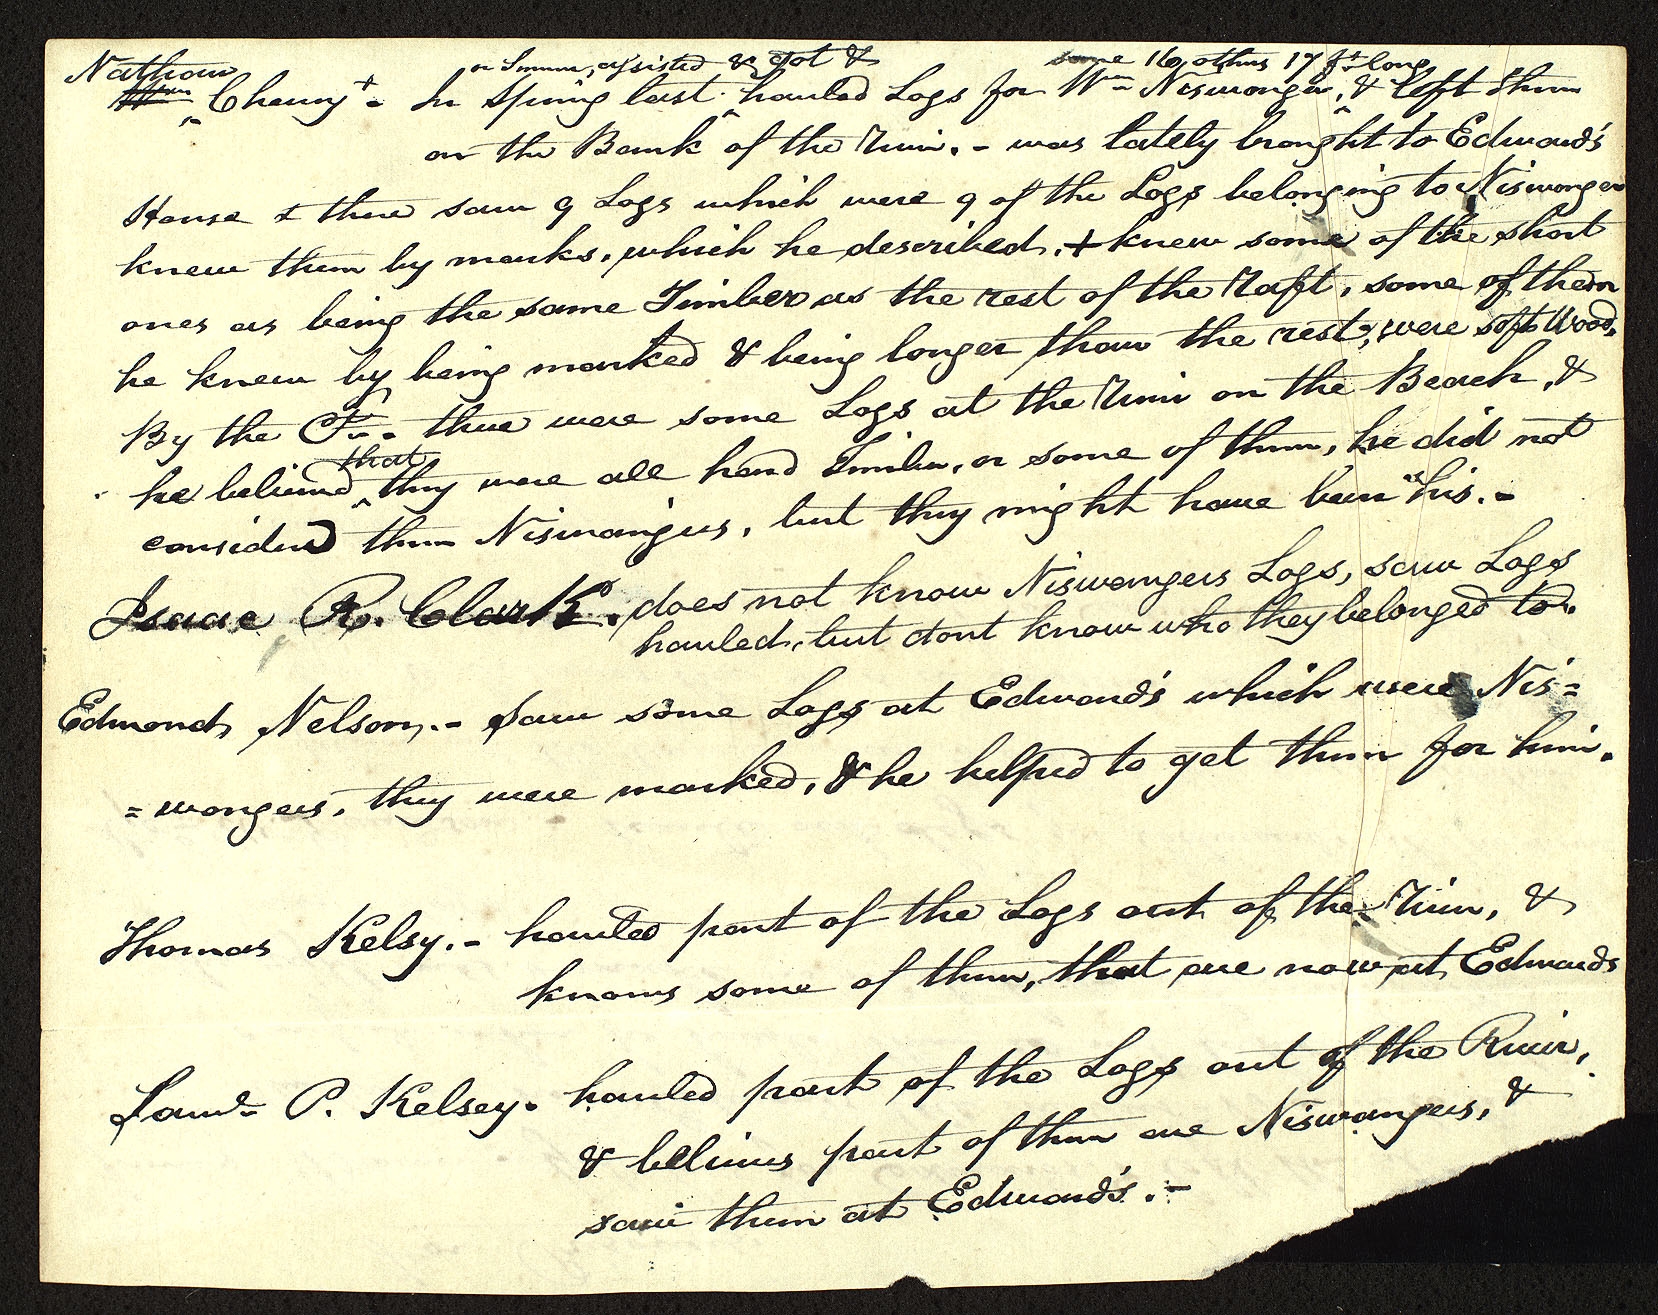 Nathan or Summer, assisted & got & some 16, others 17 ft long
Wm Cheney + - In Spring last hauled Logs for Wm Niswonger, & left them
on the Bank of the River. - was lately brought to Edward's
House & there saw 9 Logs which were 9 of the Logs belonging to Niswonger
knew them by marks, which he described, + knew some of the short
ones as being the same Timber as the rest of the Raft, some of them
he knew by being marked & being longer than the rest, were soft Wood.
By the Ct. - there were some Logs at the River on the Beach, &
that
he believed they were all hard Timber, or some of them, he did not
considered them Niswangers, but they might have been his. -
Isaac R. Clark. does not know Niswangers Logs, saw Logs
hauled, but dont know who they belonged to.
Edmond Nelson. - Saw some Logs at Edward's which were Nis=
=wongers, they were marked, & he helped to get them for him.
Thomas Kelsy. - hauled part of the Logs out of the River, &
knows some of them, that are now at Edwards
Saml P. Kelsey. hauled part of the Logs out of the River,
& believes part of them are Niswangers, &
saw them at Edward's. -